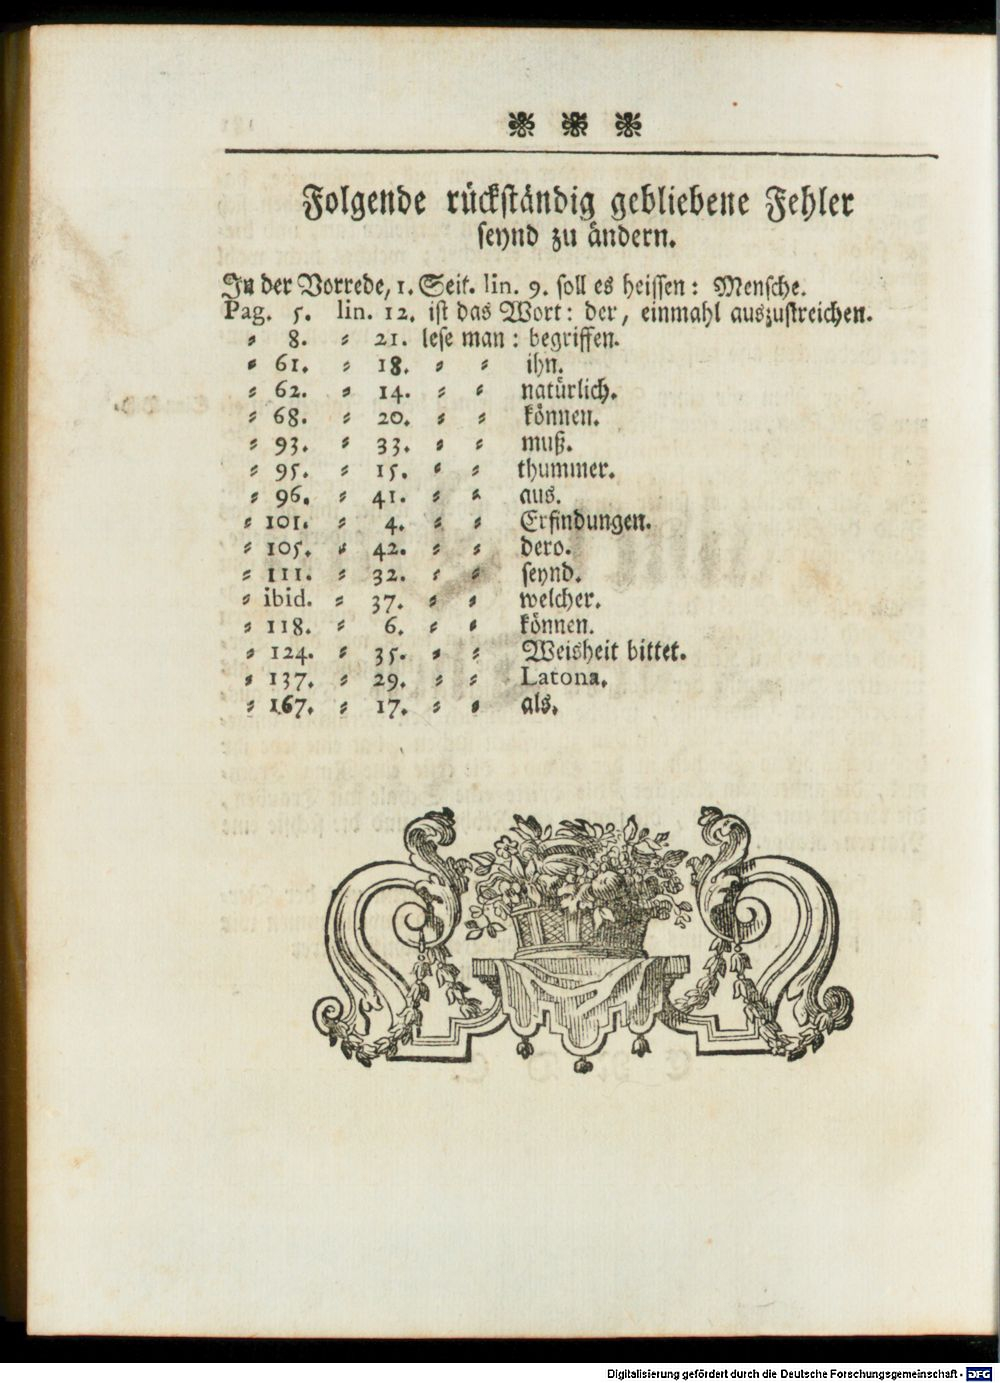 Folgende rückständig gebliebene Fehler
seynd zu ändern.
In der Vorrede, 1. Seit. lin. 9. soll es heissen: Mensche.
Pag. 5. lin. 12. ist das Wort: der, einmahl auszustreichen.
⸗ 8. ⸗ 21. lese man: begriffen.
⸗ 61. ⸗ 18. ⸗ ⸗ ihn.
⸗ 62. ⸗ 14. ⸗ ⸗ natürlich.
⸗ 68. ⸗ 20. ⸗ ⸗ können.
⸗ 93. ⸗ 33. ⸗ ⸗ muß.
⸗ 95. ⸗ 15. ⸗ ⸗ thummer.
⸗ 96. ⸗ 41. ⸗ ⸗ aus.
⸗ 101. ⸗ 4. ⸗ ⸗ Erfindungen.
⸗ 105. ⸗ 42. ⸗ ⸗ dero.
⸗ 111. ⸗ 32. ⸗ ⸗ seynd.
⸗ ibid. ⸗ 37. ⸗ ⸗ welcher.
⸗ 118. ⸗ 6. ⸗ ⸗ können.
⸗ 124. ⸗ 35. ⸗ ⸗ Weisheit bittet.
⸗ 137. ⸗ 29. ⸗ ⸗ Latona.
⸗ 167. ⸗ 17. ⸗ ⸗ als.
Digitalisierung gefördert durch die Deutsche Forschungsgemeinschaft - DFG